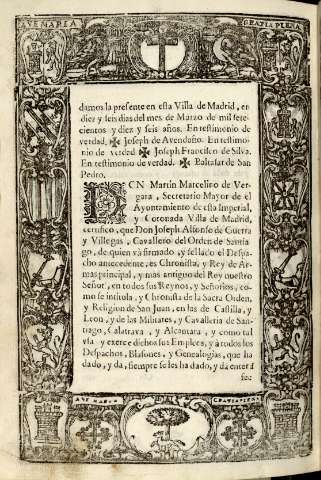 AVE MARIA GRATIA PLENA
damos la presente en esta Villa de Madrid, en
diez y seis dias del mes de Marzo de mil sete-
cientos y diez y seis años. En testimonio de
verdad. ✠ Joseph de Avendaño. En testimo-
nio de verdad ✠ Joseph Francisco de Silva.
En testimonio de verdad. ✠ Baltasar de San
Pedro.
DON Martin Marcelino de Ver-
gara, Secretario Mayor de el
Ayuntamiento de esta Imperial,
y Coronada Villa de Madrid,
certifico, que Don Joseph Alfonso de Guerra
y Villegas, Cavallero del Orden de Santia-
go, de quien và firmado, y sellado el Despa-
cho antecedente, es Chronista, y Rey de Ar-
mas principal, y mas antiguo del Rey nuestro
Señor, en todos sus Reynos, y Señorios, co-
mo se intitula, y Chronista de la Sacra Orden,
y Religion de San Juan, en las de Castilla, y
Leon, y de las Militares, y Cavalleria de San-
tiago, Calatrava, y Alcantara, y como tal
usa y exerce dichos sus Empleos, y à todos los
Despachos, Blasones, y Genealogias, que ha
dado, y dà, siempre se les ha dado, y dà entera
fee
AVE MARIA GRATIA PLENA